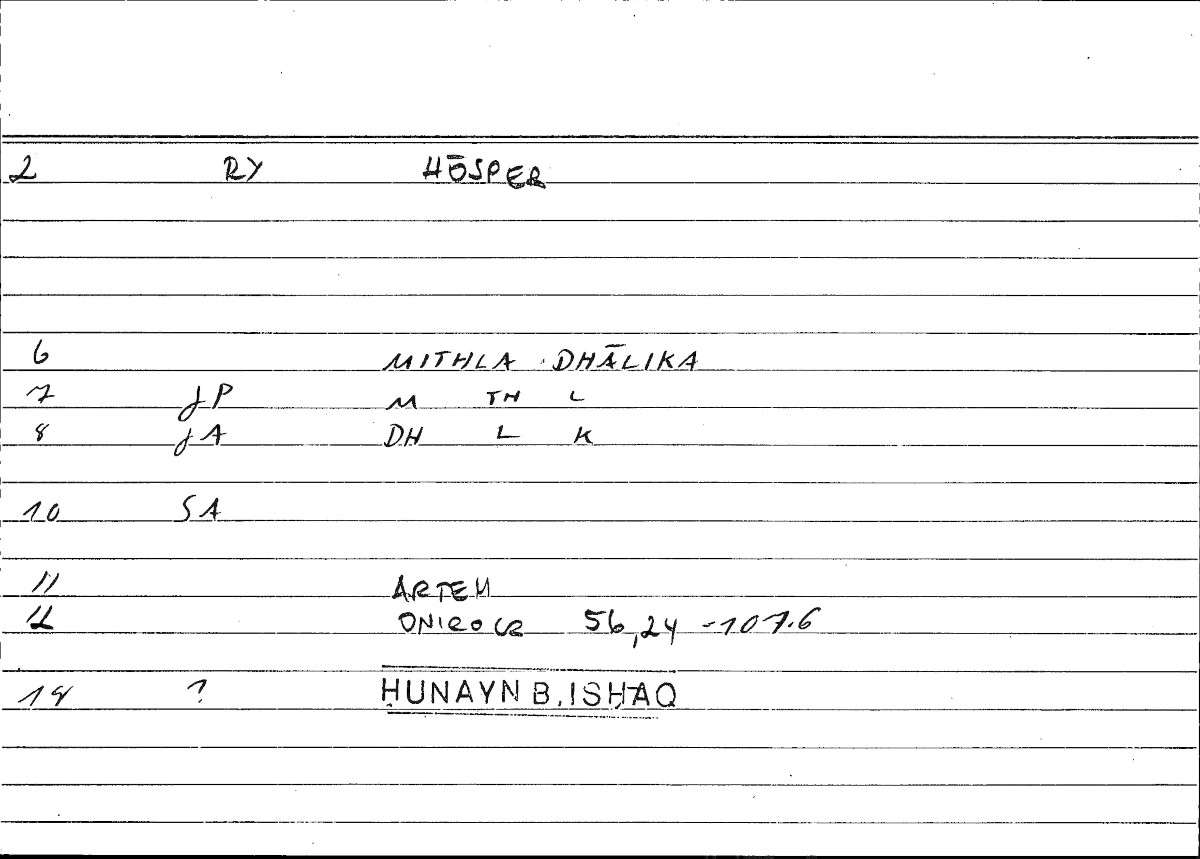 2 RY HŌSPER
6 MITHLA DHĀLIKA
7 JP M TH L
8 JA DH L K
10 SA
11 ARTEM
12 ONIROCR 56,24 -107.6
18 ? ḤUNAYN B. ISḤAQ